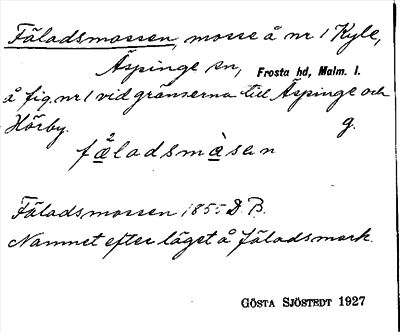 Fäladsmossen, mosse å nr 1 Kyle,
Äspinge sn, Frosta hd, Malm. l.
å fig. nr 1 vid gränserna till Äspinge och
Hörby. g.
få̤ladsmà̤san
Fäladsmossen 1855 D. B.
Namnet efter läget å fäladsmark.
GÖSTA SJÖSTEDT 1927